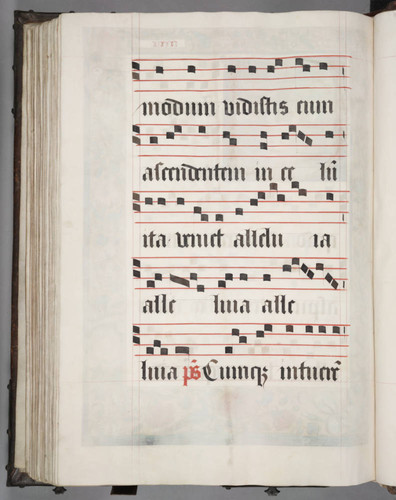 modum vidistis eum
ascendentem in ce lū
ita veniet allelu ia
alle luia alle
luia ps̄ Cumqʒ intuerēt